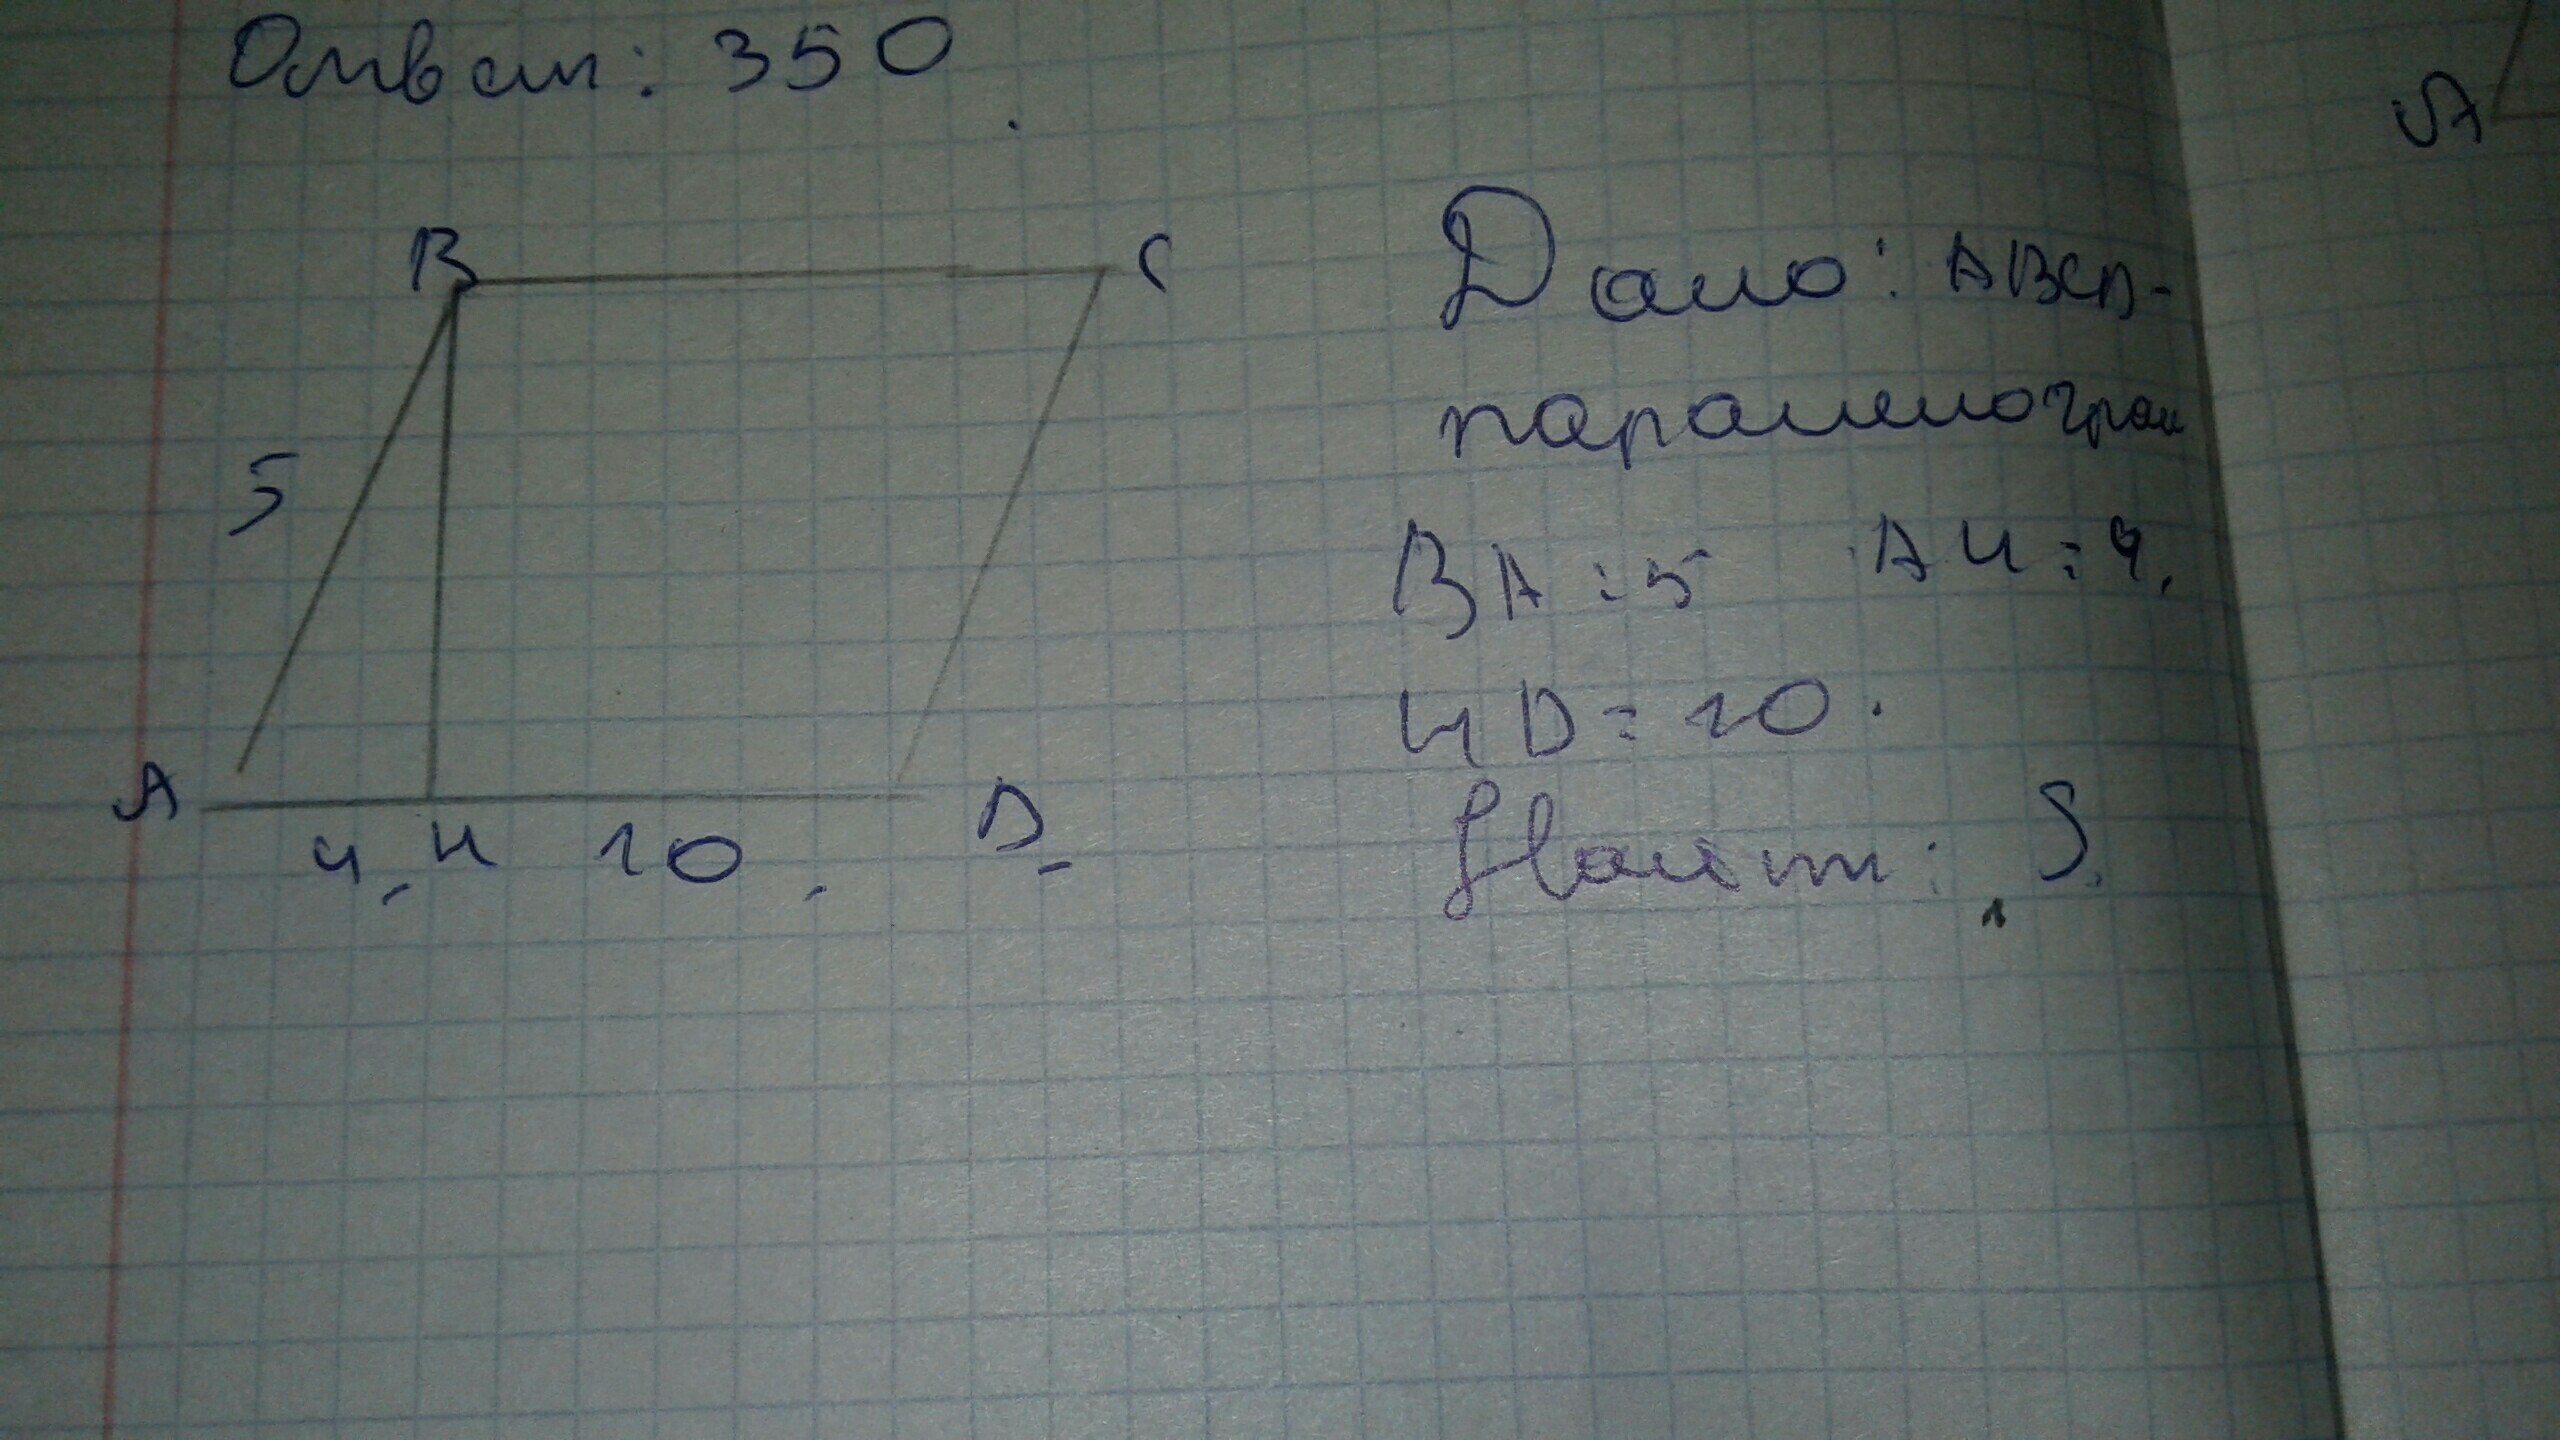 Ответ: 350
A
B C
Дано: ABCD-
параллелограм
5
BA=5 AH=4,
HD=10.
A D
4, H 10
Найти: S.